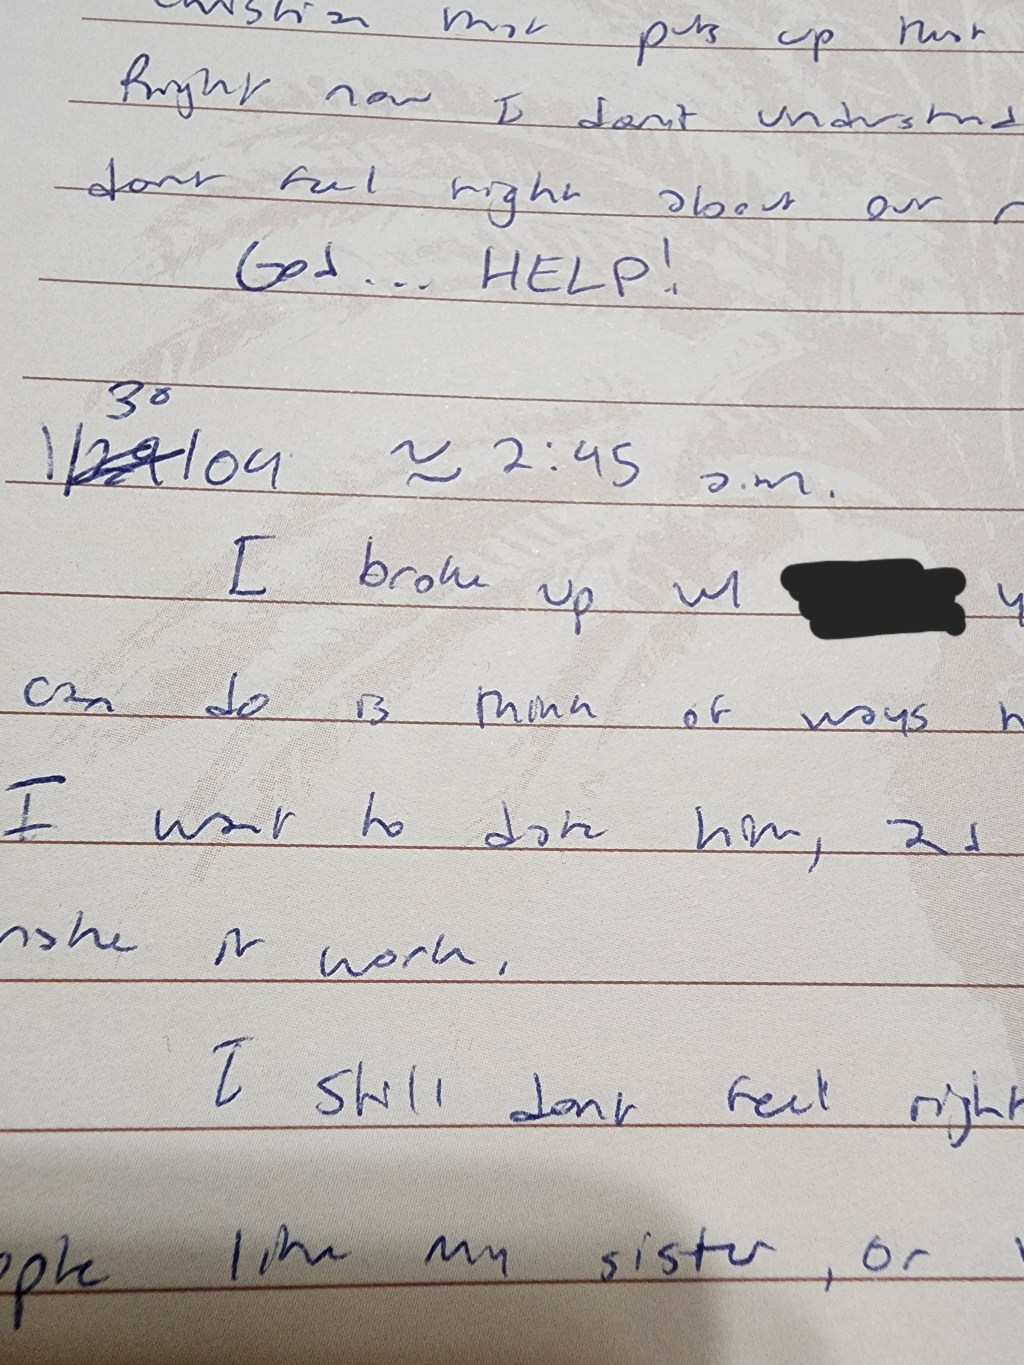 christian that puts up that
Right now I don't understand
dont feel right about our r
God... HELP!
30
1/29/04 ≈ 2:45 a.m.
I broke up w/ y
can do is think of ways h
I want to date him, as
make it work.
I still dont feel right
ople like my sister, or